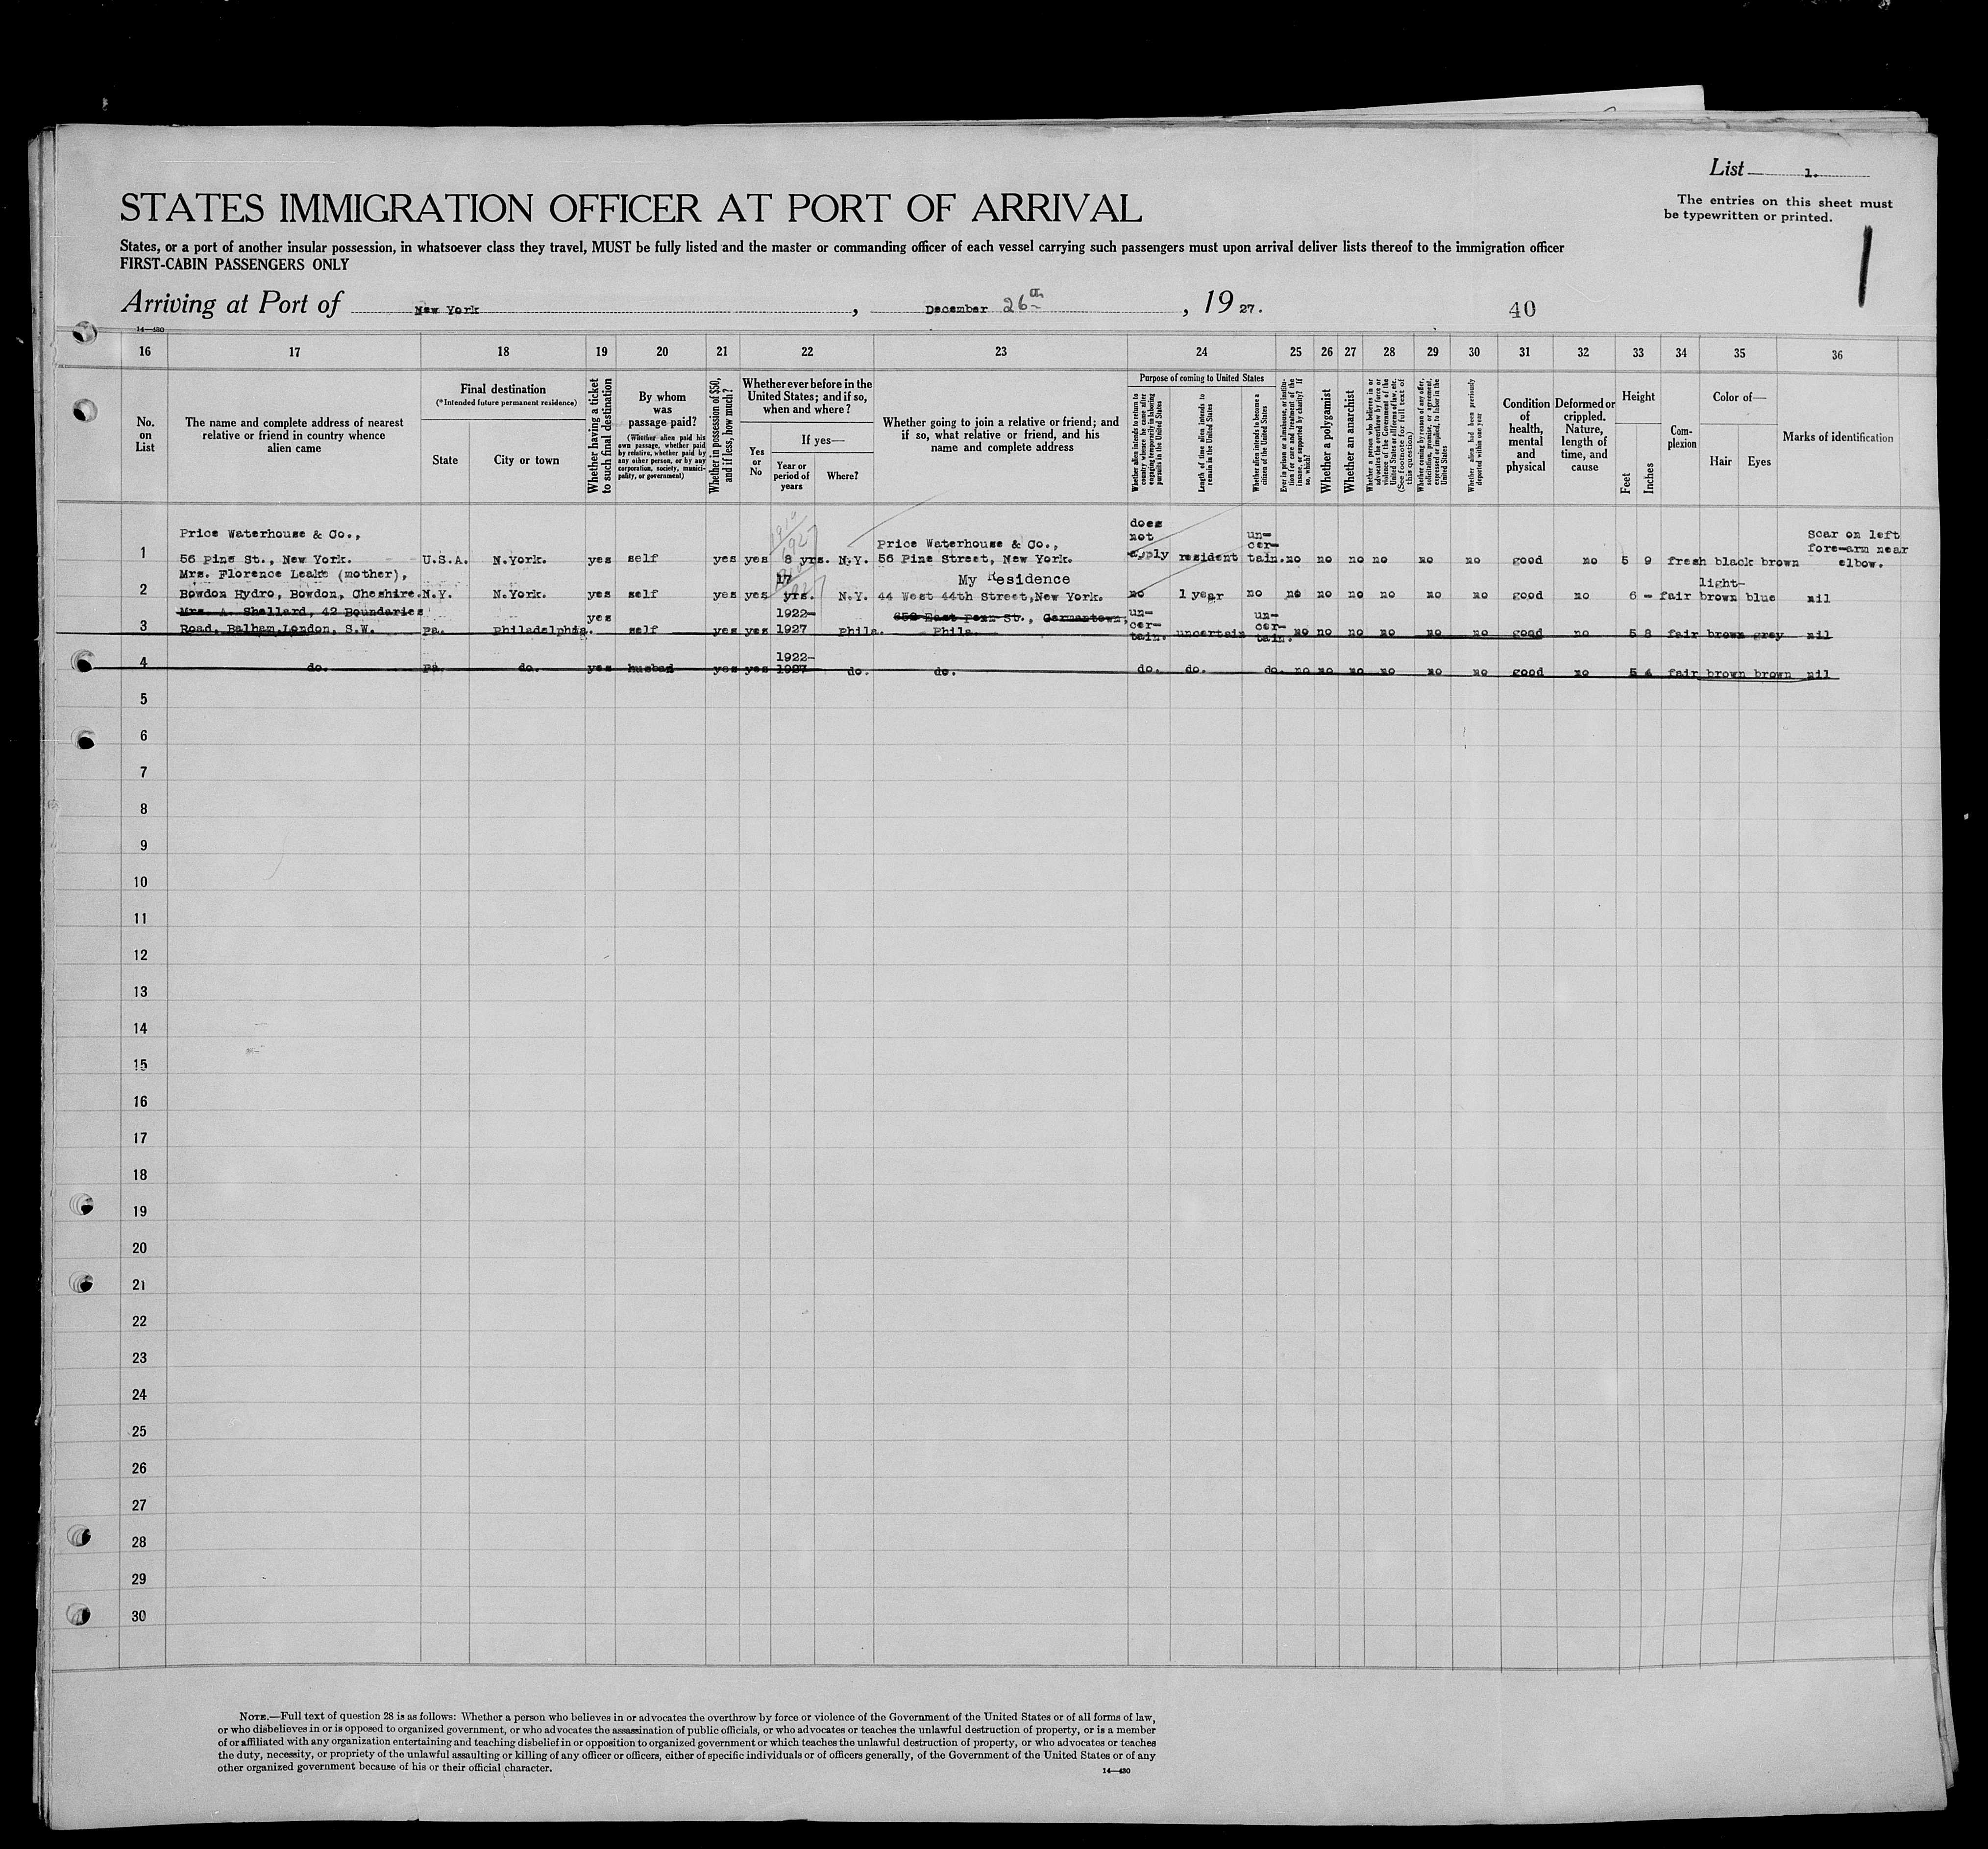 List 1.
The entries on this sheet must
be typewritten or printed.
STATES IMMIGRATION OFFICER AT PORT OF ARRIVAL
States, or a port of another insular possession, in whatsoever class they travel, MUST be fully listed and the master or commanding officer of each vessel carrying such passengers must upon arrival deliver lists thereof to the immigration officer
FIRST-CABIN PASSENGERS ONLY
Arriving at Port of New York, December 26th, 1927.
40
14—430
16 17 18 19 20 21 22 23 24 25 26 27 28 29 30 31 32 33 34 35 36
No. on List
The name and complete address of nearest relative or friend in country whence alien came
Final destination
(*Intended future permanent residence)
State
City or town
Whether having a ticket to such final destination
By whom was passage paid?
(Whether alien paid his own passage, whether paid by relative, whether paid by any other person, or by any corporation, society, municipality, or government)
Whether in possession of $50, and if less, how much?
Whether ever before in the United States; and if so, when and where?
Yes or No
If yes—
Year or period of years
Where?
Whether going to join a relative or friend; and if so, what relative or friend, and his name and complete address
Purpose of coming to United States
Whether alien intends to return to country whence he came after engaging temporarily in laboring pursuits in the United States
Length of time alien intends to remain in the United States
Whether alien intends to become a citizen of the United States
Ever in prison or almshouse, or institution for care and treatment of the insane, or supported by charity? If so, which?
Whether a polygamist
Whether an anarchist
Whether a person who believes in or advocates the overthrow by force or violence of the Government of the United States or all forms of law, etc. (See footnote for full text of this question)
Whether coming by reason of any offer, solicitation, promise, or agreement, expressed or implied, to labor in the United States
Whether alien had been previously deported within one year
Condition of health, mental and physical
Deformed or crippled. Nature, length of time, and cause
Height
Feet
Inches
Com-plexion
Color of—
Hair
Eyes
Marks of identification
1 Price Waterhouse & Co.,
56 Pine St., New York. U.S.A. N.York. yes self yes yes 8 yrs. N.Y. Price Waterhouse & Co., 56 Pine Street, New York. does not apply resident un-cer-tain. no no no no no no good no 5 9 fresh black brown Scar on left fore-arm near elbow.
2 Mrs. Florence Leake (mother),
Bowdon Hydro, Bowdon, Cheshire. N.Y. N.York. yes self yes yes 17 yrs. N.Y. My Residence 44 West 44th Street, New York. no 1 year no no no no no no no good no 6 - fair light-brown blue nil
3 Mrs. A. Shellard, 42 Boundaries
Road, Balham, London, S.W. Pa. Philadelphia. yes self yes yes 1922-1927 Phila. East Penn St., Germantown, Phila. un-cer-tain. uncertain un-cer-tain. no no no no no no good no 5 8 fair brown grey nil
4 do. Pa. do. yes husbad yes yes 1922-1927 do. do. do. do. do. no no no no no no good no 5 4 fair brown brown nil
5
6
7
8
9
10
11
12
13
14
15
16
17
18
19
20
21
22
23
24
25
26
27
28
29
30
NOTE.—Full text of question 28 is as follows: Whether a person who believes in or advocates the overthrow by force or violence of the Government of the United States or of all forms of law,
or who disbelieves in or is opposed to organized government, or who advocates the assassination of public officials, or who advocates or teaches the unlawful destruction of property, or is a member
of or affiliated with any organization entertaining and teaching disbelief in or opposition to organized government or which teaches the unlawful destruction of property, or who advocates or teaches
the duty, necessity, or propriety of the unlawful assaulting or killing of any officer or officers, either of specific individuals or of officers generally, of the Government of the United States or of any
other organized government because of his or their official character.
14—430